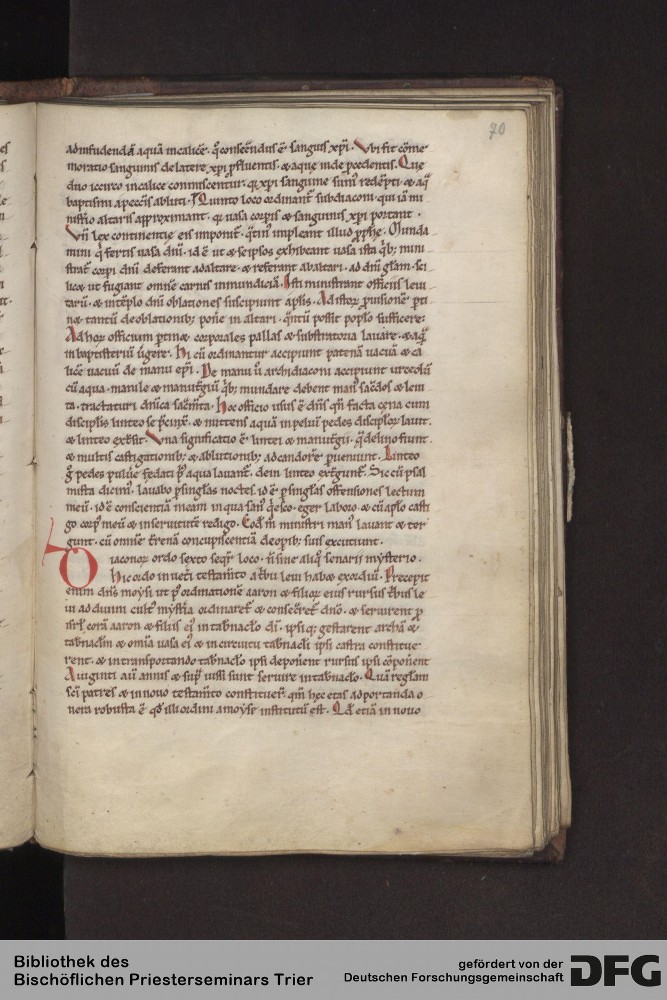 70
ad infundendā aquā in calicē. q̄ consecrādus ē sanguis xp̄i. Vbi fit cōme
moratio sanguinis de latere xp̄i p̄fluentis. & aquę inde p̄cedentis. Que
duo iccirco in calice commiscentur. q̄ xp̄i sanguine sum᷒ redēpti. & aq̄
baptismi a peccīs abluti. Quinto loco ordinant᷑ subdiaconi. qui iā mi
nisterio altaris approximant. q̄ uasa corp̄is & sanguinis xp̄i portant.
Vn̄ lex continentię eis imponit᷑. q̄tin᷒ impleant illud p̄ph̄ę. Munda
mini q̄ fertis uasa dn̄i. id ē ut & seipsos exhibeant uasa ista q̄b; mini
strat᷑ corp̄i dn̄i deferant ad altare. & referant ab altari. ad dn̄i gl̄am. sci
lic& ut fugiant omnē carnis inmundiciā. Isti ministrant officiū leui
tarū. & in tēplo dn̄i oblationes suscipiunt a pl̄is. Ad istoꝝ p̄uisionē p̄ti
n& tantū de oblationib; ponē in altari. q̄ntū possit popl̄o sufficere.
Ad hoꝝ officium p̄tin& corporales pallas & substratoria lauare. & aq̄
in baptisteriū ūgere. Hi cū ordinantur accipiunt patenā uacuā & ca
licē uacuū de manu ep̄i. De manu ū archidiaconi accipiunt urceolū
cū aqua. manile & manut̄giū q̄b; mundare debent man᷒ sac̄dos & leui
ta. tractaturi dn̄ica sac̄m̄ta. Hoc officio usus ē dn̄s qn̄ facta cęna cum
disciplīs linteo se p̄cinx̄. & mittens aquā in peluī pedes discipl̄oꝝ lauit.
& linteo ext̄sit. Vna significatio ē lintei & manut̄gii. q̄ de lino fiunt
& multis castigationib; & ablutionib; ad candorē p̄ueniunt. Linteo
g̊ pedes puluē fędati p̄ aqua lauant᷑. dein linteo ext̄gunt᷑. Sic cū psal
mista dicim᷒. lauabo p̄ singl̄as noctes. id ē p̄ singl̄as offensiones lectum
meū. id ē conscientiā meam in qua san᷒ q̄esco. eger laboro. & cū apl̄o casti
go corp᷒ meū & in seruitutē redigo. Eod̄ m̊ ministri man᷒ lauant & ter
gunt. cū omnē t̄renā concupiscentiā de op̄ib; suis excutiunt.
Diaconoꝝ ordo sexto seq̄t᷑ loco. n̄ sine aliq̊ senarii mysterio.
Hic ordo in ueti testam̄to a t̄bu leui hab& exordiū. Precepit
enim dn̄s moysi ut p᷒ ordinationē aaron & filioꝝ ei᷒ rursus t̄bus le
ui ad diuini cult᷒ mystia ordinaret᷑ & consec̄ret᷑ dn̄o. & seruirent p̄
isrl̄ corā aaron & filiis ei᷒ in tab̄nacl̄o dī. ipsiq; gestarent archā &
tab̄nacl̄m & om̄ia uasa ei᷒ & in circuitu tab̄nacl̄i ipsi castra constitue
rent. & in transportando tab̄nacl̄o ipsi deponēnt rursus ipsi cōponēnt
A uiginti aū annis & sup᷑ iussi sunt seruire in tab̄nacl̄o. Quā regl̄am
sc̄i patres & in nouo testam̄to constituer̄. qm̄ hęc ętas ad portanda o
nera robusta ē qd̄ illi ordini a moyse institutū est. Qd̄ etiā in nouo
Bibliothek des
Bischöflichen Priesterseminars Trier
gefördert von der
Deutschen Forschungsgemeinschaft
DFG